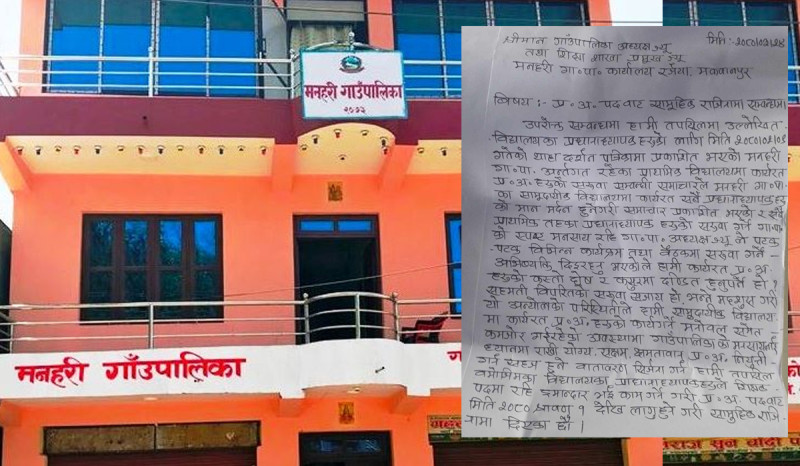 मनहरी गाउँपालिका
२०७३
मनहरी गाँउपालिका
श्रीमान गाँउपालिका अध्यक्ष ज्यू
मिति :- २०८०/०३/२४
तथा शिक्षा शाखा प्रमुख ज्यू
मनहरी गा॰पा॰ कार्यालय रजैया, मकवानपुर
विषय :- प्र॰अ॰ पदबाट सामुहिक राजिनामा सम्बन्धमा
उपरोक्त सम्बन्धमा हामी तपसिलमा उल्लेखित
विद्यालयका प्रधानाध्यापक हरुको लागि मिति
गतेको यात्रा दर्शन पत्रिकामा प्रकाशित भएको मनहरी
गा॰पा॰ अर्न्तगत रहेका प्राथमिक विद्यालयमा कार्यरत
प्र॰अ॰ हरुको सरुवा सम्बन्धी समाचारले मनहरी गा॰पा॰
का सामुदायीक विद्यालयमा कार्यरत सबै प्रधानाध्यापक हरु
को मान मर्दन हुनेगरी समाचार प्रकाशित भएको र
प्राथमिक तहका प्रधानाध्यापक हरुको सरुवा गर्न गा॰पा॰
को स्पष्ट मनसाय राखि गा॰पा॰ अध्यक्ष ज्यू ले पटक
पटक विभिन्न कार्यक्रम तथा बैठकमा सरुवा गर्ने -
अभिव्यक्ति दिइरहनु भएकोले हामी कार्यरत प्र॰अ॰
हरुको कस्तो दोष र कसुरमा दण्डित हुनुपर्ने हो ?
सहमती विपरितको सरुवा सजाय हो, भन्ने महशुस गरी
यो अन्यौलको परिस्थितीले हामी सामुदायीक विद्यालय
मा कार्यरत प्र॰अ॰ हरुको कार्यगर्ने मनोबल समेत -
कमजोर गइरहेको अवस्थामा गाउँपालिकाको
ध्यानमा राखी योग्य, सक्षम, क्षमतावान् प्र॰अ॰ नियुक्ती -
गर्न सक्षम हुने वातावरण सिर्जना गर्न हामी तपसिल
बमोजिमका विद्यालयका प्रधानाध्यापकहरुले शिक्षक
पदमा राहि इमान्दार भई काम गर्ने गरी प्र॰अ॰ पदबाट
मिति २०८० श्रावण १ देखि लागु हुने गरी सामुहिक राजि-
नामा दिएका छौं ।